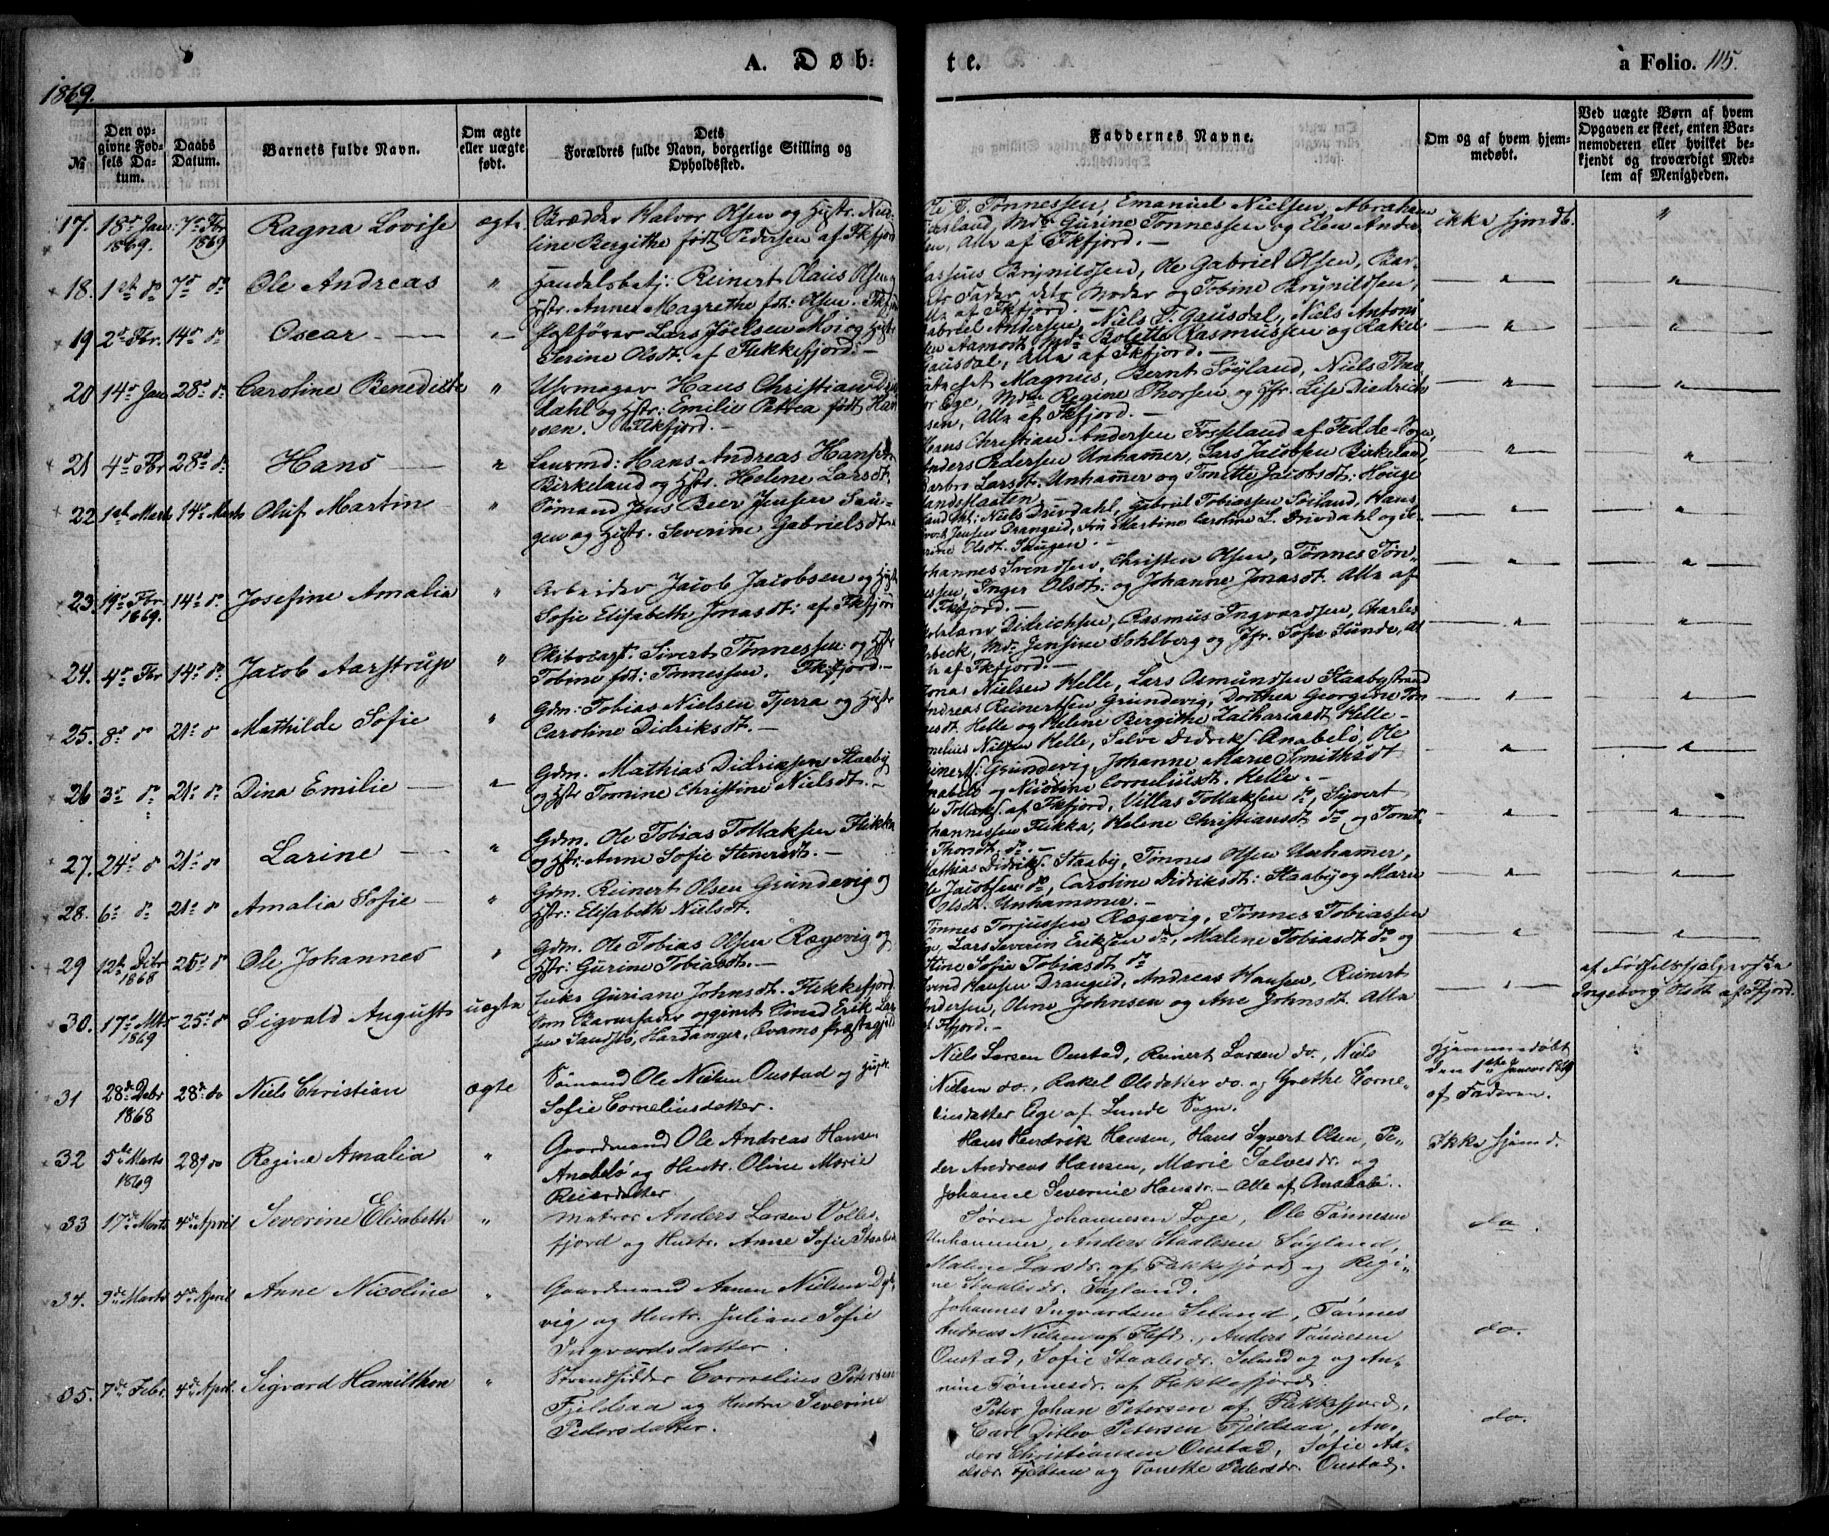 1869.
A. Døb-
te.
à Folio. 115.
№
Den op-
givne Fød-
sels Da-
tum.
Daabs
Datum.
Barnets fulde Navn.
Om ægte
eller uægte
født.
Dets
Forældres fulde Navn, borgerlige Stilling og
Opholdssted.
Faddernes Navne.
Om og af hvem hjem-
medøbt.
Ved uægte Børn af hvem
Opgaven er skeet, enten Bar-
nemoderen eller hvilket be-
kjendt og troværdigt Med-
lem af Menigheden.
17. 18de Jan 1869. 7de Fbr 1869 Ragna Lovise ægte
Halvor Olsen og Hstr.
line Bergithe født Pedersen af Fkfjord
T. Tønnessen, Emanuel Nielsen, Abraham
Gurine Tønnessen og Elen Ander
sen, Alle af Fkfjord. —
ikke hjmdb. "
18. 1ste do 7de do Ole Andreas "
Handelsbetj: Reinert Olaus Olsen og
Hstr. Anne Magrethe fdt: Olsen. Fkfjord
Brynildsen, Ole Gabriel Olsen, Bar-
nets Fader, dets Moder og Tobine Brynildsen,
Alle af Fkfjord. —
19 2de Fbr. 14de do Oscar "
Lars Joelsen Moi og Hstr
Serine Olsdt. af Flekkefjord. —
Gabriel Andersen, Niels T. Gausdal, Niels Antoni
sen Aamodt, Bolette Rasmussen og Rakel
Gausdal, Alle af Fkfjord. —
20 14de Jan 28de do Caroline Benedikte "
Uhrmager Hans Christian
dahl og Hstr: Emilie Petrea født Han
sen. Fkfjord. —
Magnus, Bernt Søyland, Niels
Ege, Regine Thorsen og Jfr. Lise Diedrich
sen, Alle af Fkfjord. —
21 4de Fbr 28de do Hans "
Hans Andreas Hansen
Birkeland og Hstr. Helene Larsdt.
Hans Christian Andersen Fosseland af Fedde Sogn,
Anders Pedersen Unhamer, Lars Jacobsen Birkeland,
Barbro Larsdt. Unhamer og Tonette Jacobsdt: Houge
22 1ste Marts 14de Marts Oluf Martin "
Sømand Jens Beer Jensen Sau-
gen og Hstr. Severine Gabrielsdt
Niels Drivdahl, Gabriel Tobiassen Søiland, Hans
Jensen Drangeid, Fru Martine Caroline S. Drivdahl og
Olsdt. Saugen. —
23. 19de Fbr 1869. 14de do Josefine Amalia "
Arbeider Jacob Jacobsen og Hstr
Sofie Elisabeth Jonasdt: af Fkfjord
Johannes Svendsen, Christen Olsen, Tønnes Tøn-
nessen, Inger Olsdt: og Johanne Jonasdt. Alle af
Fkfjord. —
24. 4de Fbr 14de do Jacob Aarstrup "
Sivert Tønnessen og Hstr
Tobine fdt: Tønnessen. Fkfjord. —
Didrichsen, Rasmus Ingvardsen, Charles
Jensine Sohlberg og Jfr. Sofie Sunde, Al
le af Fkfjord. —
25. 8de do 21de do Mathilde Sofie "
Gdm: Tobias Nielsen Tjerra og Hstr
Caroline Didriksdt. —
Jonas Nielsen Helle, Lars Osmundsen Staaby
Andreas Reinertsen Grundevig, Dorthea Georgine Tøn
nesdt. Helle og Helene Bergithe Zachariasdt Helle —
26 3de do 21de do Dina Emilie "
Gdm. Mathias Didriksen Staaby
og Hstr Tomine Christine Nielsdt. —
Cornelius Nielsen Helle, Salve Didriks. Anabelø, Ole
Reinerts. Grundevig, Johanne Marie Smithsdt
Anabelø og Nicoline Corneliusdt. Helle. —
27. 24de do 21de do Larine "
Gdm. Ole Tobias Tollaksen Flikka
og Hstr: Anne Sofie Stenersdt. —
Tollaks. af Fkfjord, Villas Tollaksen do, Syvert
Johannessen Flikka, Helene Christiansdt do, og Tonet
Thorsdt. do. —
28. 6de do 21de do Amalia Sofie "
Gdm. Reinert Olsen Grundevig og
Hstr: Elisabeth Nielsdt.
Mathias Didriks. Staaby, Tønnes Olsen Unhamer,
Ole Jacobsen do, Caroline Didriksdt: Staaby og Maren
Olsdt. Unhammer. —
29 12te Dcbr 1868 25de do Ole Johannes "
Gdm. Ole Tobias Olsen Rægevig og
Hstr: Gurine Tobiasdt. —
Tønnes Torjussen Rægevig, Tønnes Tobiassen
Ege, Lars Severin Eriksen do, Malene Tobiasdt do og
Stine Sofie Tobiasdt do
30. 17de Mts 1869 25de do Sigvald August uægte
Guriane Johnsdt. Flekkefjord,
som Barnefader opgivet Sømd Erik Lar
sen Sandstø, Hardanger, Qvams Præstegjeld
Svend Hansen Drangeid, Andreas Hansen, Reinert
Andersen, Oline Johnsen og Ane Johnsdt. Alle
af Fkfjord. —
af Fødselshjælpersken
Ingeborg Olsdt af Fkfjord.
31 28de Debr 1868 28de do Niels Christian ægte
Sømand Ole Nielsen Oustad og Hustr.
Sofie Corneliusdatter.
Niels Larsen Oustad, Reinert Larsen do., Niels
Nielsen do., Rakel Olsdatter do. og Grethe Corne-
liusdatter Ege af Lunde Sogn.
Hjemmedøbt
den 1ste Januar 1869
af Faderen.
32 5te Marts 1869 28de do Regine Amalia "
Gaardmand Ole Andreas Hansen
Anabelø og Hustr. Oline Marie
Reiersdatter.
Hans Hendrik Hansen, Hans Syvert Olsen, Pe-
der Andreas Hansen, Marie Salvesdr. og
Johanne Severine Hansdr. — Alle af Anabelø.
Ikke hjemd.
33 17de Marts 4de April Severine Elisabeth "
Matros Anders Larsen Volles
fjord og Hustr. Anne Sofie
Søren Johannesen Loge, Ole Tønnesen
Unhammer, Anders Staalesen Søyland,
Malene Larsdr. af Flekkefjord og Regi-
ne Staalesdr. Søyland.
do.
34. 9de Marts 4de April Anne Nicoline "
Gaardmand Anen Nielsen
vig og Hustr. Juliane Sofie
Ingvardsdatter.
Johannes Ingvardsen Seland, Tønnes
Andreas Nielsen af Flefd., Anders Tønnesen
Oustad, Sofie Staalesdr. Seland og og An-
nine Tønnesdr. af Flekkefjord.
do.
35. 7de Febr. 4de April. Sigvard Hamilthon "
Strandsidder Cornelius Petersen
Fjeldsaa og Hustru Severine
Pedersdatter.
Peter Johan Petersen af Flekkefjord,
Carl Ditlev Petersen Fjeldsaa, An-
ders Christiansen Oustad, Sofie
Fjeldsaa og Tonette Pedersdr. Oustad.
do.